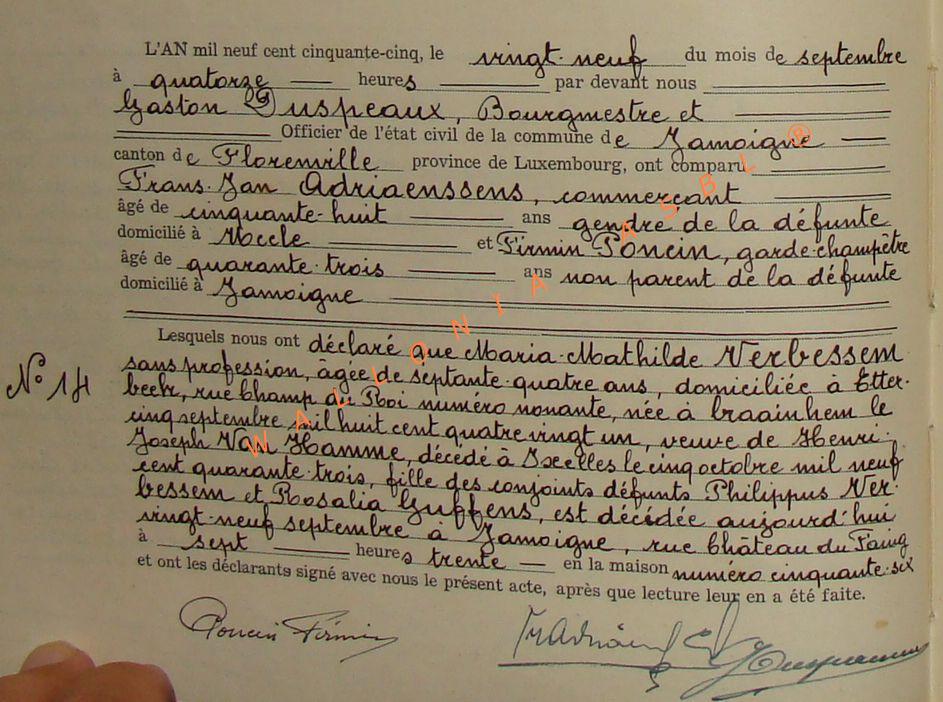 L'AN mil neuf cent cinquante-cinq, le vingt-neuf du mois de septembre
à quatorze heures par devant nous
Gaston Duspeaux, Bourgmestre et
Officier de l'état civil de la commune de Jamoigne
canton de Florenville province de Luxembourg, ont comparu
Frans-Jan Adriaenssens, commerçant
âgé de cinquante-huit ans gendre de la défunte
domicilié à Uccle et Firmin Poncin, garde-champêtre
âgé de quarante-trois ans non parent de la défunte
domicilié à Jamoigne
Lesquels nous ont déclaré que Maria-Mathilde Verbessem
N° 14
sans profession, âgée de septante-quatre ans, domiciliée à Etter-
beek, rue Champ du Roi numéro nonante, née à Craainhem le
cinq septembre mil huit cent quatre vingt un, veuve de Henri-
Joseph Van Hamme, décédé à Ixelles le cinq octobre mil neuf
cent quarante-trois, fille des conjoints défunts Philippus Ver-
bessem et Rosalia Guffens, est décédée aujourd'hui
vingt-neuf septembre à Jamoigne, rue Château du Faing
à sept heures trente en la maison numéro cinquante-six
et ont les déclarants signé avec nous le présent acte, après que lecture leur en a été faite.
Poncin Firmin
WALLONIA ASBL ®